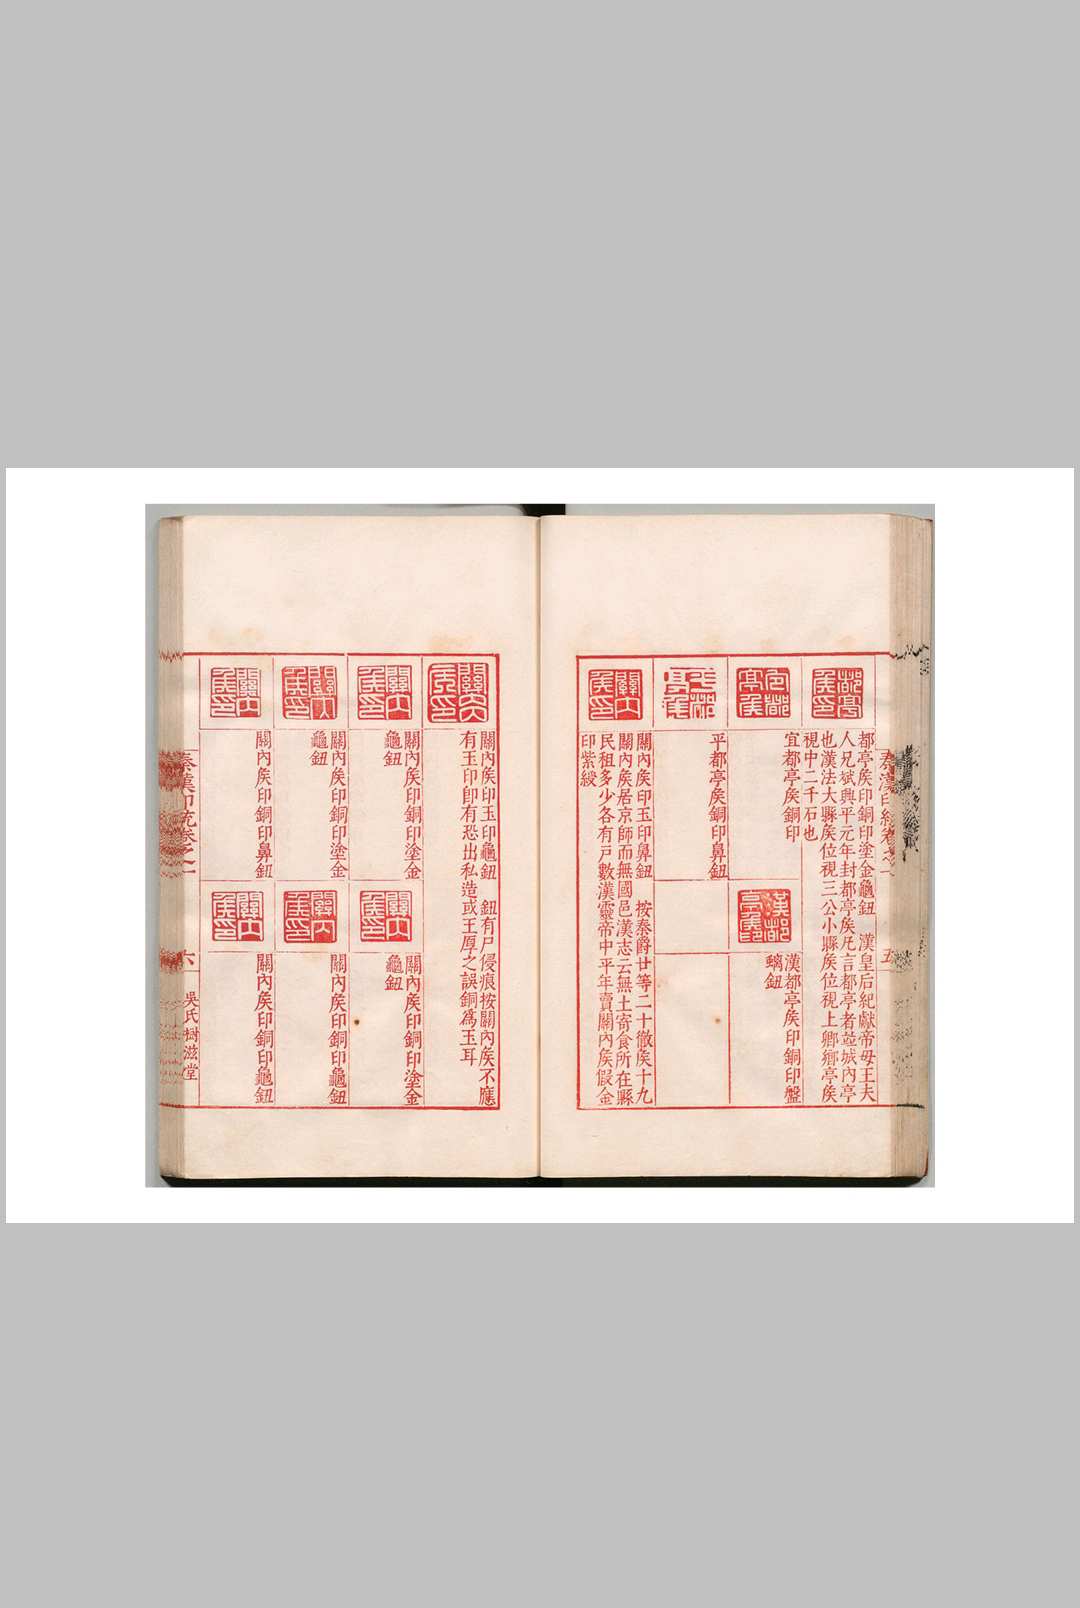 秦漢印統卷之一
五
都亭侯印
都亭矦印銅印塗金龜鈕 漢皇后紀獻帝母王夫
人兄斌興平元年封都亭矦凡言都亭者竝城內亭
也漢法大縣矦位視三公小縣矦位視上卿鄉亭矦
視中二千石也
宜都亭侯
宜都亭矦銅印
漢都亭侯印
漢都亭矦印銅印盤
螭鈕
平都亭侯
平都亭矦銅印鼻鈕
關內侯印
關內矦印玉印鼻鈕 按秦爵廿等二十徹矦十九
關內矦居京師而無國邑漢志云無土寄食所在縣
民租多少各有戸數漢靈帝中平年賣關內矦假金
印紫綬
關內侯印
關內矦印玉印龜鈕 鈕有尸侵痕按關內矦不應
有玉印卽有恐出私造或王厚之誤銅爲玉耳
關內侯印
關內矦印銅印塗金
龜鈕
關內侯印
關內矦印銅印塗金
龜鈕
關內侯印
關內矦印銅印塗金
龜鈕
關內侯印
關內矦印銅印龜鈕
關內侯印
關內矦印銅印鼻鈕
關內侯印
關內矦印銅印龜鈕
秦漢印統卷之一
六
吳氏樹滋堂